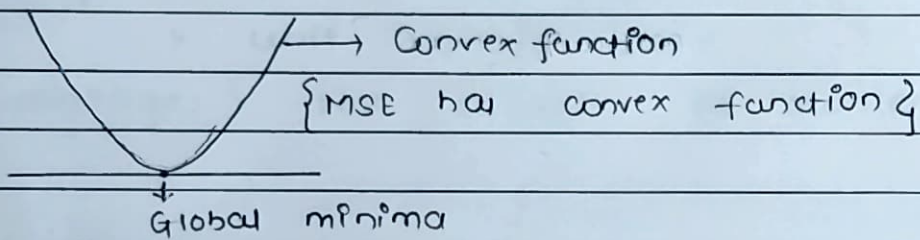 Convex function
{MSE has convex function}
Global minima